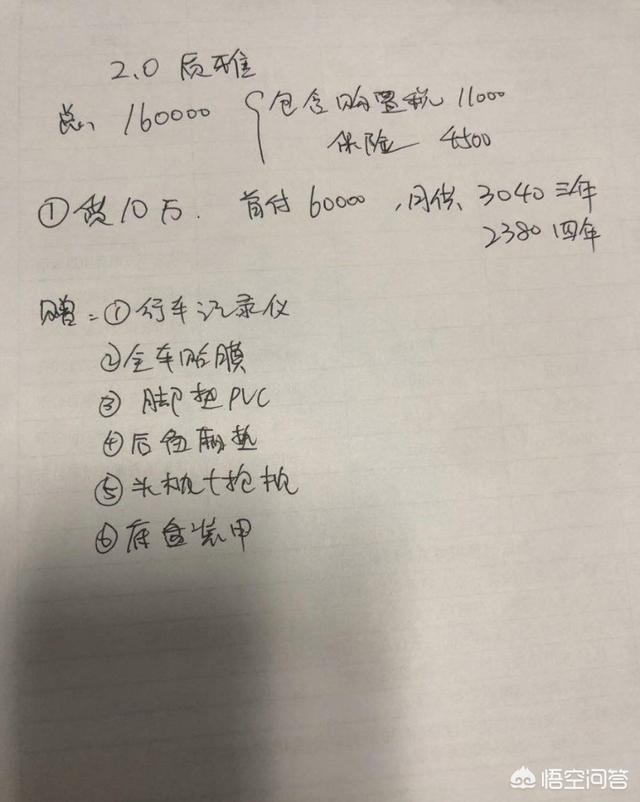 2.0 质雅
总: 160000 { 包含购置税 11000
保险 4500
①贷10万. 首付 60000 , 月供: 3040 三年
2380 四年
赠: ①行车记录仪
②全车贴膜
③ 脚垫PVC
④后备厢垫
⑤头枕+抱枕
⑥底盘装甲
悟空问答